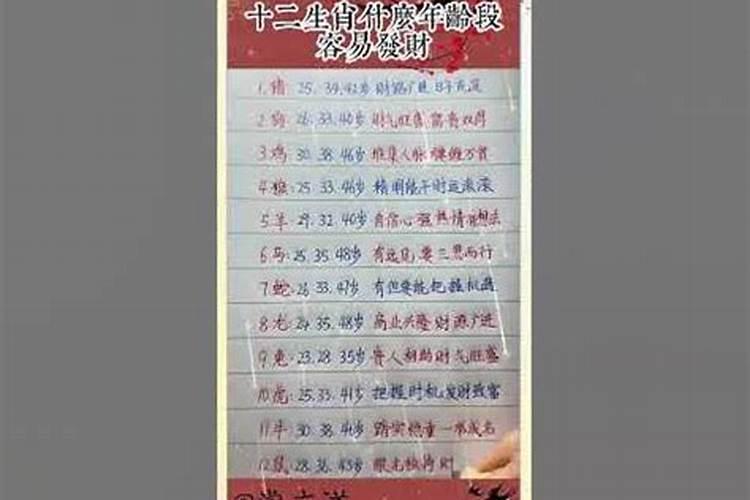 十二生肖什麼年齡段
容易發財
1.猪 25. 39.42岁 财路广进日子
2.狗 26.33.40岁 财气旺盛富贵双得
3.鸡 30.38.46岁 堆集人脉 腰缠万贯
4.猴:25 33.46岁 精明能干财运滚滚
5.羊 29.32.40岁 自信心强热情有想法
6马:25.35.48岁 有远见,要三思而行
7.蛇:26 33.47岁 有但要能把握机遇
8.龙:24.35.48岁 商业兴隆财源广进
9.兔:23.28 35岁 贵人相助财气旺盛
10.虎:25.33.41岁 把握时机,发财致富
11.牛 30.38. 岁 踏实稳重一举成名
12.鼠 28.36.45岁 眼光独得财